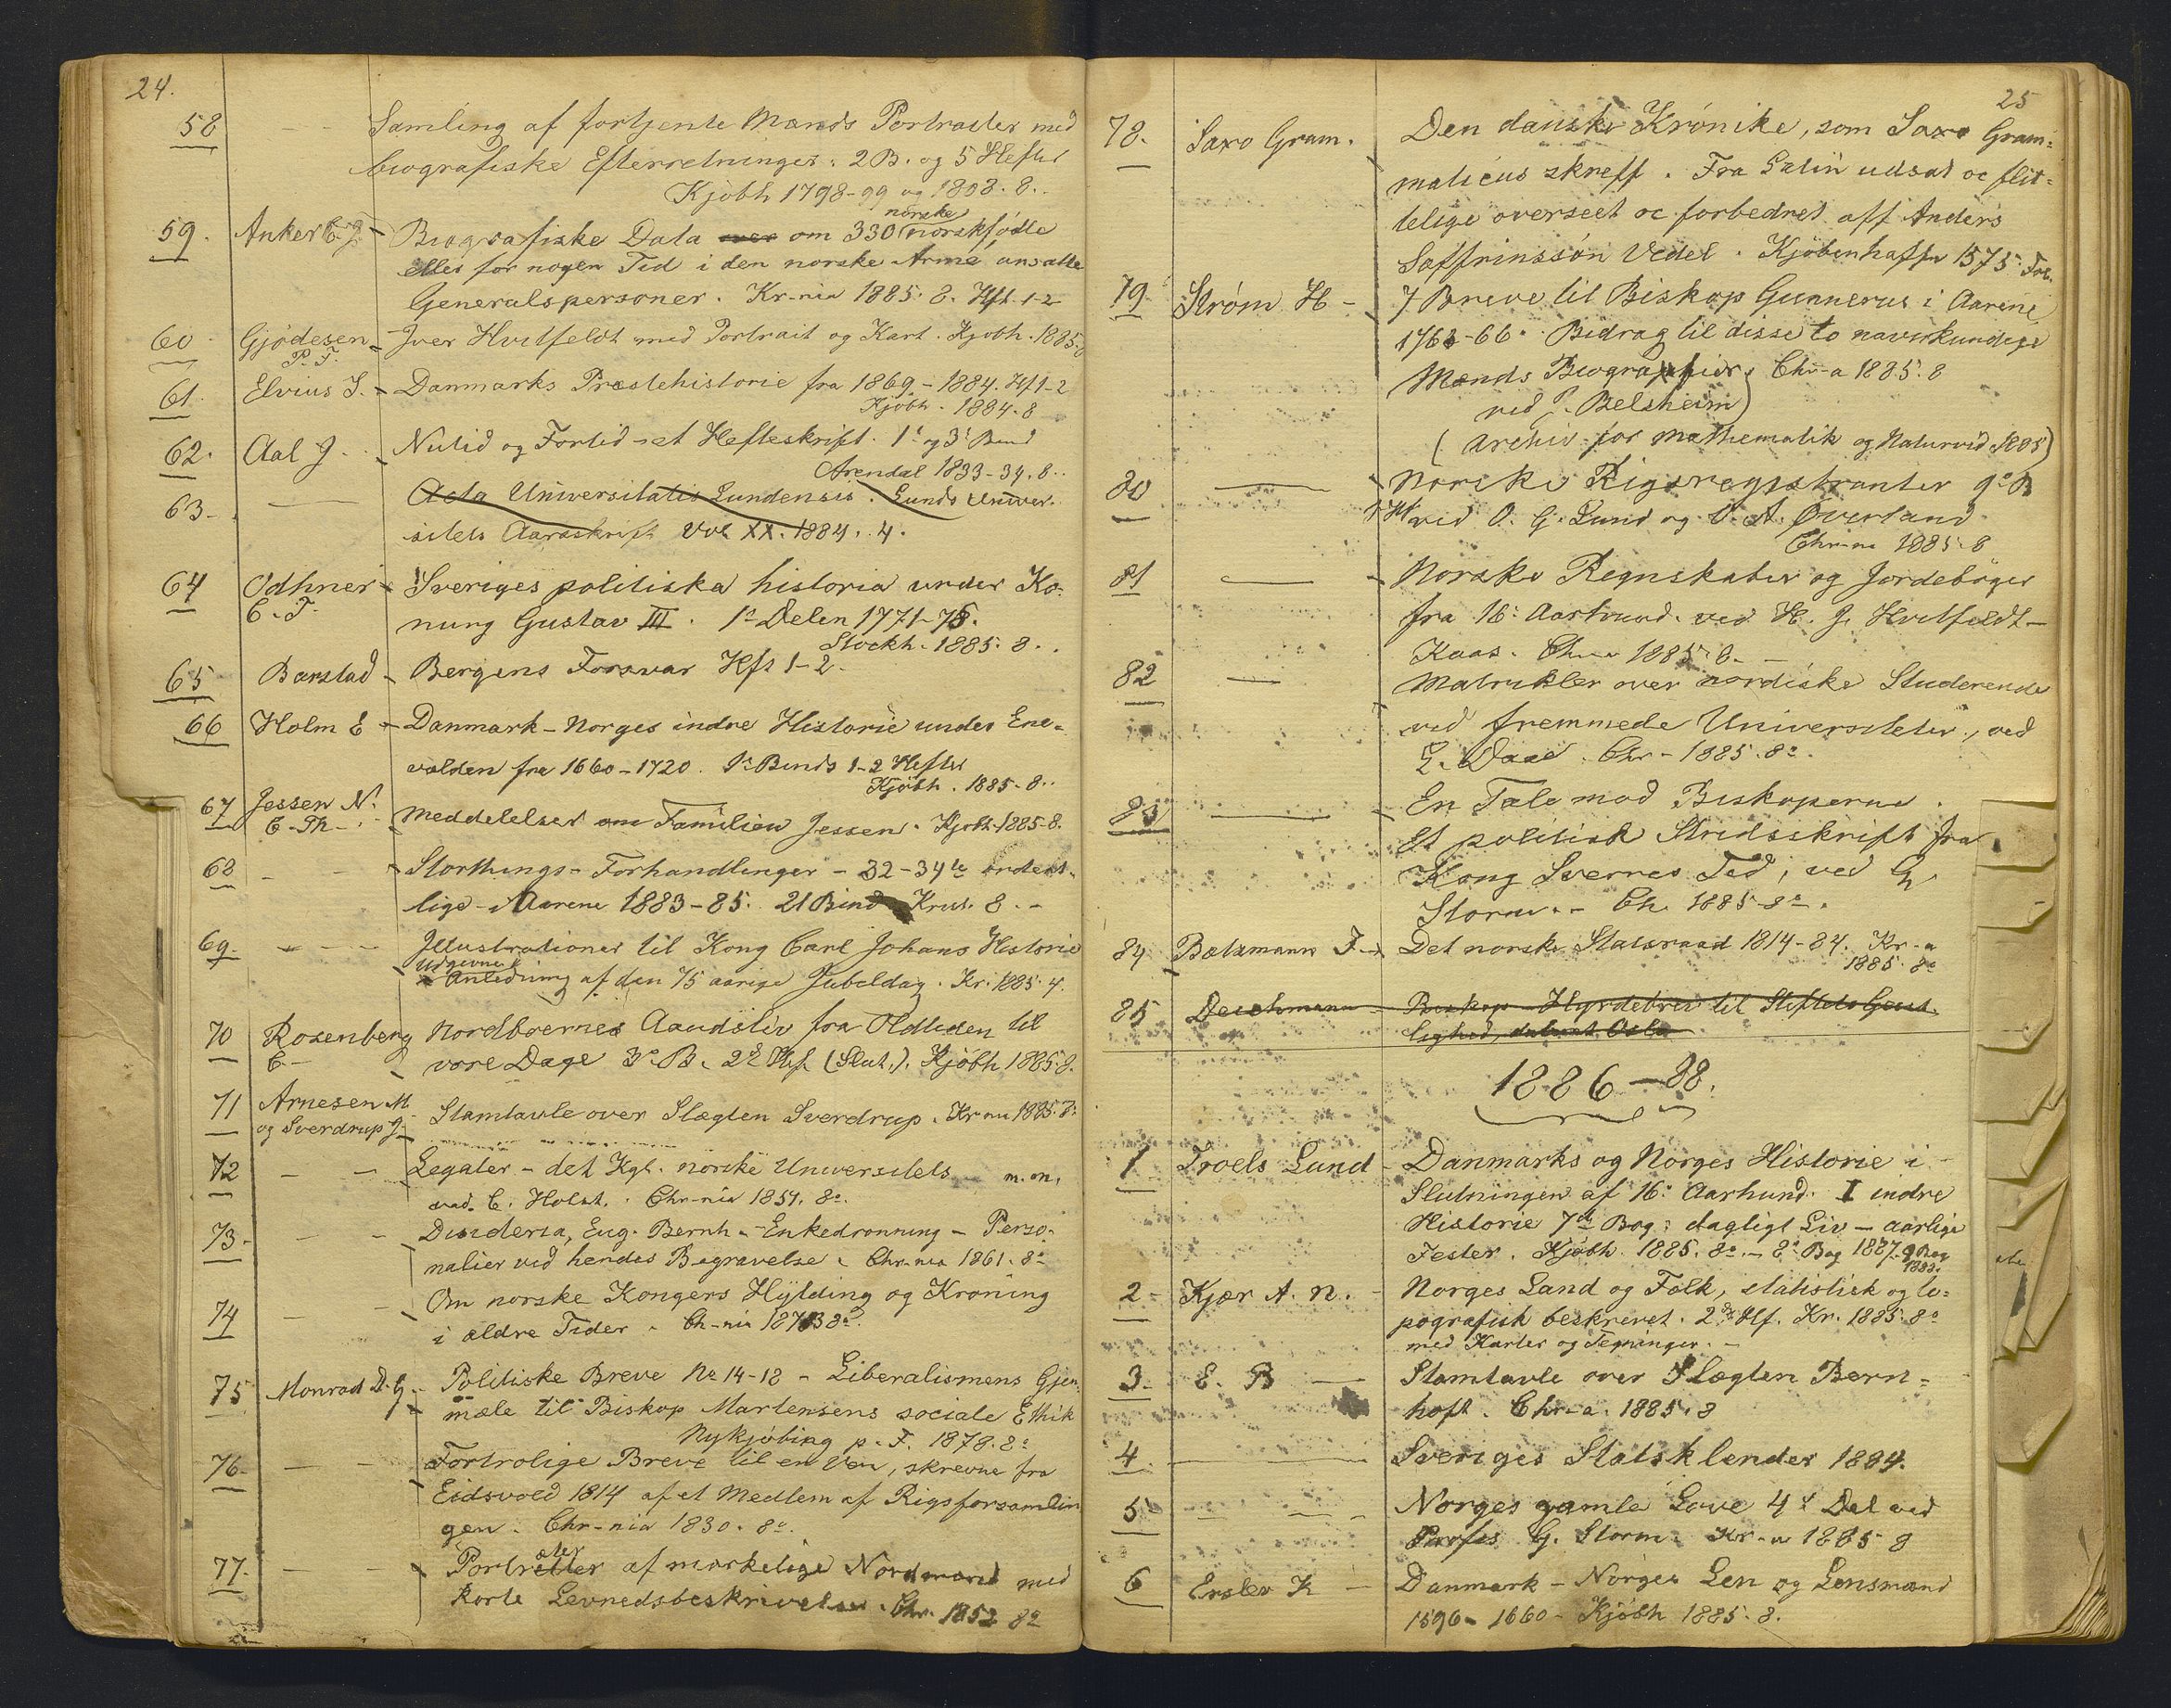 24.
58 — — Samling af fortjente Mænds Portræter med
biografiske Efterretninger. 2 B. og 5 Hefter
Kjøbh 1798-99 og 1808. 8..
norske
59. Anker C. J. - Biografiske Data over om 330 norskfødte
eller for nogen Tid i den norske Armé ansatte
Generalspersoner. Kr-nia 1885. 8. Hft. 1-2
60 Gjödesen - Iver Hvitfeldt med Portrait og Kart. Kjøbh. 1885. 8
P. F.
61. Elvius S. - Danmarks Præstehistorie fra 1869-1884. Hf. 1-2
Kjøbh. 1884. 8
62. Aal J. - Nutid og Fortid - et Hefteskrift. 1e og 3e Bind
Arendal 1833-34. 8..
63 - — Acta Universitatis Lundensis. Lunds Univer-
sitets Aarsskrift Vol XX. 1884. 4.
64 Odhner - Sveriges politiska historia under Ko-
C. T. nung Gustav III. 1a Delen 1771-78.
Stockh. 1885. 8..
65 Barstad - Bergens Forsvar Hft 1-2.
66 Holm E - Danmark-Norges indre Historie under Ene-
vælden fra 1660-1720. 1e Binds 1-2 Hefter
Kjøbh. 1885. 8..
67 Jessen N.
C. Th - Meddelelser om Familien Jessen. Kjøbh. 1885. 8.
68 — — Storthings-Forhandlinger - 32-34te ordent-
lige - Aarene 1883-85. 21 Bind Krist. 8. -
69. — — Illustrationer til Kong Carl Johans Historie
Udgivne
i Anledning af den 75 aarige Jubeldag. Kr. 1885. 4.
70 Rosenberg Nordboernes Aandsliv fra Oldtiden til
C - vore Dage 3e B. 2e Hf. (Slut.). Kjöbh 1885. 8.
71 Arnesen M.
og Sverdrup J - Stamtavle over Slægten Sverdrup. Kr-nia 1885. 8.
72 — — Legater - det Kgl. norske Universitets m. m.
ved. C. Holst. Chr-nia 1851. 8o.
73 - — — Desideria, Eug. Bernh. - Enkedronning - Perso-
nalier ved hendes Begravelse. Chr-nia 1861. 8o
74 — Om norske Kongers Hylding og Kroning
i ældre Tider. Ch-nia 1873 8o.
75 Monrad D. G. - Politiske Breve No 14-18 - Liberalismens Gjen-
mæle til Biskop Martensens sociale Ethik
Nykjøbing p. F. 1878. 8o
76 - — — Fortrolige Breve til en Ven, skrevne fra
Eidsvold 1814 af et Medlem af Rigsforsamlin
gen. Chr-nia 1830. 8o.
æter
77. — — Portrætter af mærkelige Nordmænd med
korte Levnedsbeskrivelser. Chr. 1853 8o
25
78. Saxo Gram. Den danske Krønike, som Saxo Gram-
maticus skreff. Fra Latin udsat oc flit-
telige overseet oc forbedret aff Anders
Søffrinssøn Vedel. Kjøbenhaffn 1575. Fol.
79. Strøm H - 7 Breve til Biskop Gunnerus i Aarene
1762-66. Bidrag til disse to navnkundige
Mænds Biografier, Chr-a 1885. 8
ved J. Belsheim)
(Archiv for Mathematik og Naturvid 1885)
80 — Norske Rigsregistranter 9e B
1 Hf ved O. G. Lund og O. A. Øverland
Chr-nia 1885. 8
81 — Norske Regnskaber og Jordebøger
fra 16e Aarhund. ved H. J. Hvitfeldt-
Kaas. Chr-a 1885. 8. —
82 — Matrikler over nordiske Studerende
ved fremmede Universiteter, ved
L. Daae. Chr- 1885. 8o.
83 — En Tale mod Biskoperne.
Et politisk Stridsskrift fra
Kong Sverres Tid, ved G.
Storm. - Ch. 1885 8o.
84 Bætzmann F. - Det norske Statsraad 1814-84. Kr-a
1885. 8o
85 Deichmann - Biskop - Hyrdebrev til Stiftets Geist-
lighed, dateret Oslo
1886-88.
1 Troels Lund - Danmarks og Norges Historie i
Slutningen af 16e Aarhund. I indre
Historie 7de Bog: dagligt Liv - aarlige
Fester. Kjøbh. 1885. 8o. - 8e Bog 1887. 9 Bog
1888.
2 - Kjær A. N. - Norges Land og Folk, statistisk og to-
pografisk beskrevet. 2det Hf. Kr. 1885. 8o
med Karter og Tegninger. -
3. E. B — Stamtavle over Slægten Bern-
hoft. Chr-a. 1885. 8
4. — Sveriges Statsklender 1884.
5 — — Norges gamle Love 4e Del ved
Profes G. Storm. Kr-a 1885 8
6 Erslev K - Danmark-Norges Len og Lensmænd
1596-1660 - Kjøbh 1885. 8.